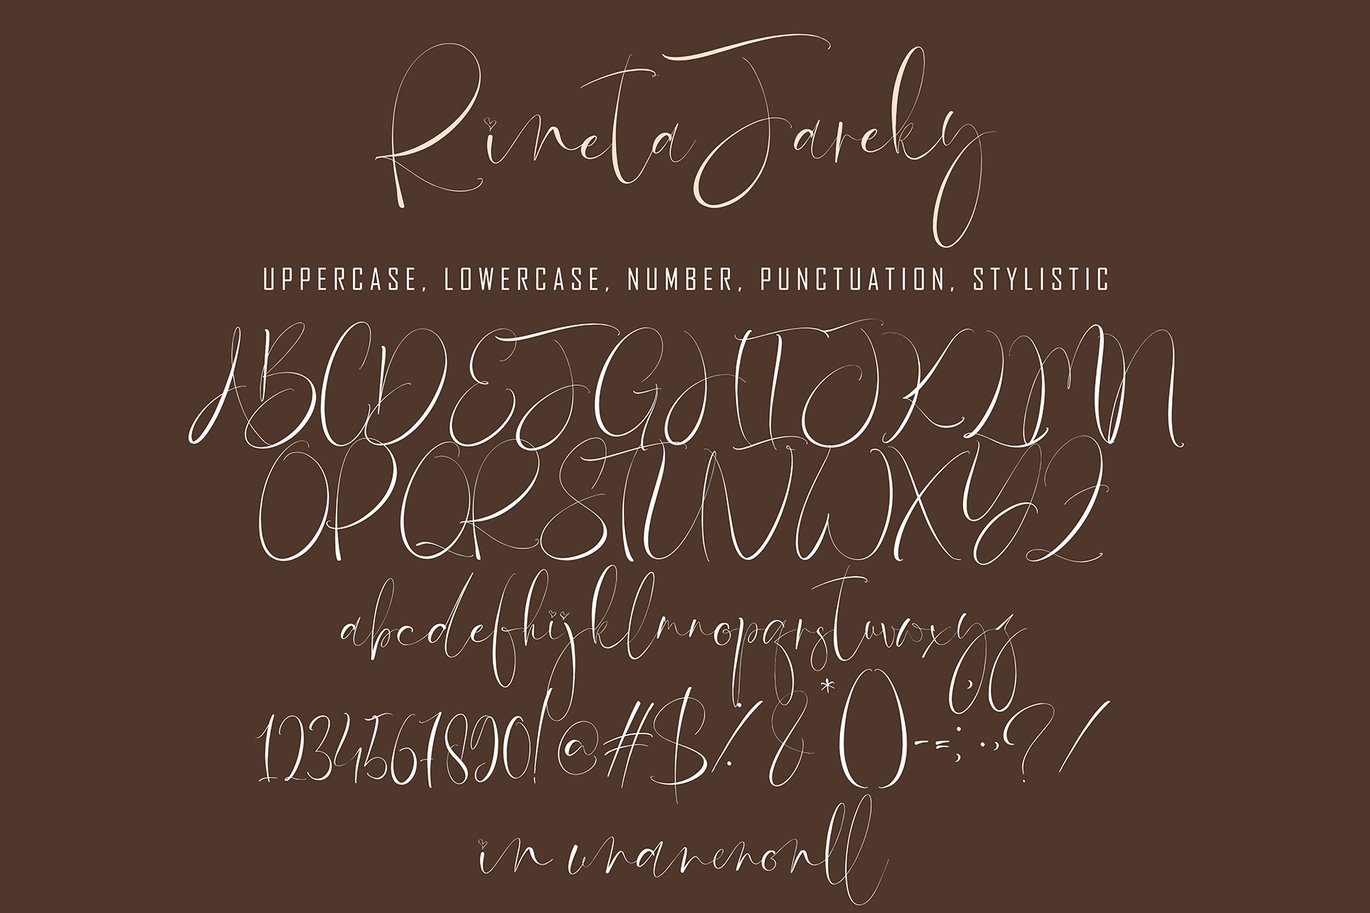 Rineta Jareky
UPPERCASE, LOWERCASE, NUMBER, PUNCTUATION, STYLISTIC
ABCDEFGHIJKLMN
OPQRSTUVWXYZ
abcdefghijklmnopqrstuvwxyz
1234567890!@#$%&*()-=;:.,?/